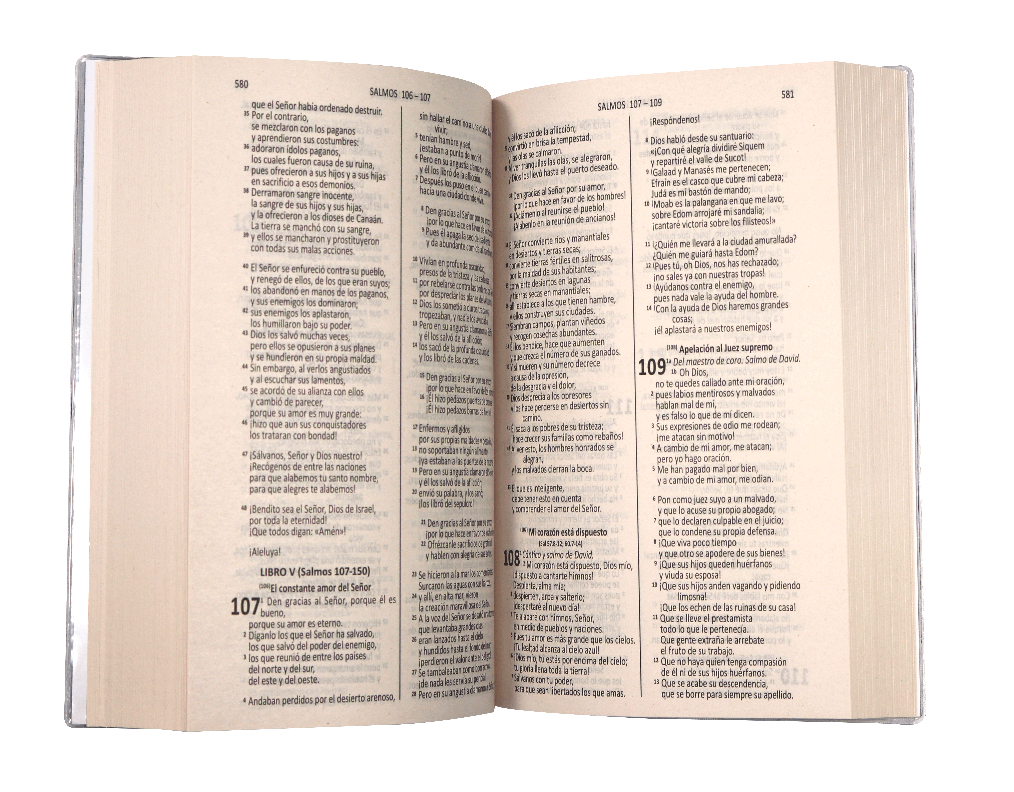 580
SALMOS 106 – 107
que el Señor había ordenado destruir.
35 Por el contrario,
se mezclaron con los paganos
y aprendieron sus costumbres:
36 adoraron ídolos paganos,
los cuales fueron causa de su ruina,
37 pues ofrecieron a sus hijos y a sus hijas
en sacrificio a esos demonios.
38 Derramaron sangre inocente,
la sangre de sus hijos y sus hijas,
y la ofrecieron a los dioses de Canaán.
La tierra se manchó con su sangre,
39 y ellos se mancharon y prostituyeron
con todas sus malas acciones.
40 El Señor se enfureció contra su pueblo,
y renegó de ellos, de los que eran suyos;
41 los abandonó en manos de los paganos,
y sus enemigos los dominaron;
42 sus enemigos los aplastaron,
los humillaron bajo su poder.
43 Dios los salvó muchas veces,
pero ellos se opusieron a sus planes
y se hundieron en su propia maldad.
44 Sin embargo, al verlos angustiados
y al escuchar sus lamentos,
45 se acordó de su alianza con ellos
y cambió de parecer,
porque su amor es muy grande:
46 hizo que aun sus conquistadores
los trataran con bondad!
47 ¡Sálvanos, Señor y Dios nuestro!
¡Recógenos de entre las naciones
para que alabemos tu santo nombre,
para que alegres te alabemos!
48 ¡Bendito sea el Señor, Dios de Israel,
por toda la eternidad!
¡Que todos digan: «Amén»!
¡Aleluya!
LIBRO V (Salmos 107-150)
(106) El constante amor del Señor
107 1 Den gracias al Señor, porque él es
bueno,
porque su amor es eterno.
2 Díganlo los que el Señor ha salvado,
los que salvó del poder del enemigo,
3 los que reunió de entre los países
del norte y del sur,
del este y del oeste.
4 Andaban perdidos por el desierto arenoso,
sin hallar el camino a
vivir;
5 tenían hambre y sed,
¡estaban a punto de morir!
6 Pero en su angustia clamaron
y él los libró de la aflicción.
7 Después los puso en el
hacia una ciudad donde vivir.
8 Den gracias al Señor por su
¡por lo que hace en favor de
9 Pues él apaga la sed del
y da abundante
10 Vivían en profunda oscuridad,
presos de la tristeza y
11 por rebelarse contra las
por despreciar los planes
12 Dios los sometió a
tropezaban, y nadie los
13 Pero en su angustia clamaron
y él los salvó de la aflicción;
14 los sacó de la profunda oscuridad
y los libró de las cadenas.
15 Den gracias al Señor por su
¡por lo que hace en favor de
16 ¡Él hizo pedazos puertas de
¡Él hizo pedazos barras de
17 Enfermos y afligidos
por sus propias maldades y
18 no soportaban ningún alimento
¡ya estaban a las puertas de la
19 Pero en su angustia clamaron
y él los salvó de la aflicción;
20 envió su palabra, y los sanó;
¡los libró del sepulcro!
21 Den gracias al Señor por su
¡por lo que hace en favor de
22 Ofrézcanle sacrificios de
y hablen con alegría de
23 Se hicieron a la mar los
Surcaron las aguas con
24 y allí, en alta mar, vieron
la creación maravillosa de
25 A la voz del Señor se desató
que levantaba grandes olas
26 eran lanzados hasta el cielo
y hundidos hasta el fondo del mar
¡perdieron el valor ante el peligro!
27 Se tambaleaban como
¡de nada les servía su pericia!
28 Pero en su angustia clamaron
SALMOS 107 – 109
581
y él los sacó de la aflicción;
convirtió en brisa la tempestad,
y las olas se calmaron.
Al ver tranquilas las olas, se alegraron,
y Dios los llevó hasta el puerto deseado.
Den gracias al Señor por su amor,
¡por lo que hace en favor de los hombres!
¡Alábenlo en la reunión de ancianos!
El Señor convierte ríos y manantiales
en desiertos y tierras secas;
convierte tierras fértiles en salitrosas,
por la maldad de sus habitantes;
convierte desiertos en lagunas
y tierras secas en manantiales;
allí establece a los que tienen hambre,
y ellos construyen sus ciudades.
Siembran campos, plantan viñedos
y recogen cosechas abundantes.
los bendice, hace que aumenten
y que crezca el número de sus ganados.
Si mueren y su número decrece
a causa de la opresión,
de la desgracia y el dolor,
Dios desprecia a los opresores
y los hace perderse en desiertos sin
camino.
saca a los pobres de su tristeza;
¡hace crecer sus familias como rebaños!
Al ver esto, los hombres honrados se
alegran,
y los malvados cierran la boca.
El que es inteligente,
debe tener esto en cuenta
y comprender el amor del Señor.
Mi corazón está dispuesto
(Sal 57.8-12; 60.7-14)
108 Cántico y salmo de David.
Mi corazón está dispuesto, Dios mío,
¡dispuesto a cantarte himnos!
Despierta, alma mía;
despierten, arpa y salterio;
¡despertaré al nuevo día!
Te alabaré con himnos, Señor,
en medio de pueblos y naciones.
Pues tu amor es más grande que los cielos.
¡Tu lealtad alcanza al cielo azul!
Dios mío, tú estás por encima del cielo;
¡Tu gloria llena toda la tierra!
Sálvanos con tu poder,
para que sean libertados los que amas.
¡Respóndenos!
8 Dios habló desde su santuario:
«¡Con qué alegría dividiré Siquem
y repartiré el valle de Sucot!
9 ¡Galaad y Manasés me pertenecen;
Efraín es el casco que cubre mi cabeza;
Judá es mi bastón de mando;
10 ¡Moab es la palangana en que me lavo;
sobre Edom arrojaré mi sandalia;
¡cantaré victoria sobre los filisteos!»
11 ¿Quién me llevará a la ciudad amurallada?
¿Quién me guiará hasta Edom?
12 ¡Pues tú, oh Dios, nos has rechazado;
¡no sales ya con nuestras tropas!
13 ¡Ayúdanos contra el enemigo,
pues nada vale la ayuda del hombre.
14 ¡Con la ayuda de Dios haremos grandes
cosas;
¡él aplastará a nuestros enemigos!
(108) Apelación al Juez supremo
109 1a Del maestro de coro. Salmo de David.
1b Oh Dios,
no te quedes callado ante mi oración,
2 pues labios mentirosos y malvados
hablan mal de mí,
y es falso lo que de mí dicen.
3 Sus expresiones de odio me rodean;
¡me atacan sin motivo!
4 A cambio de mi amor, me atacan;
pero yo hago oración.
5 Me han pagado mal por bien,
y a cambio de mi amor, me odian.
6 Pon como juez suyo a un malvado,
y que lo acuse su propio abogado;
7 que lo declaren culpable en el juicio;
que lo condene su propia defensa.
8 ¡Que viva poco tiempo
y que otro se apodere de sus bienes!
9 ¡Que sus hijos queden huérfanos
y viuda su esposa!
10 ¡Que sus hijos anden vagando y pidiendo
limosna!
¡Que los echen de las ruinas de su casa!
11 Que se lleve el prestamista
todo lo que le pertenecía.
Que gente extraña le arrebate
el fruto de su trabajo.
12 Que no haya quien tenga compasión
de él ni de sus hijos huérfanos.
13 Que se acabe su descendencia,
que se borre para siempre su apellido.